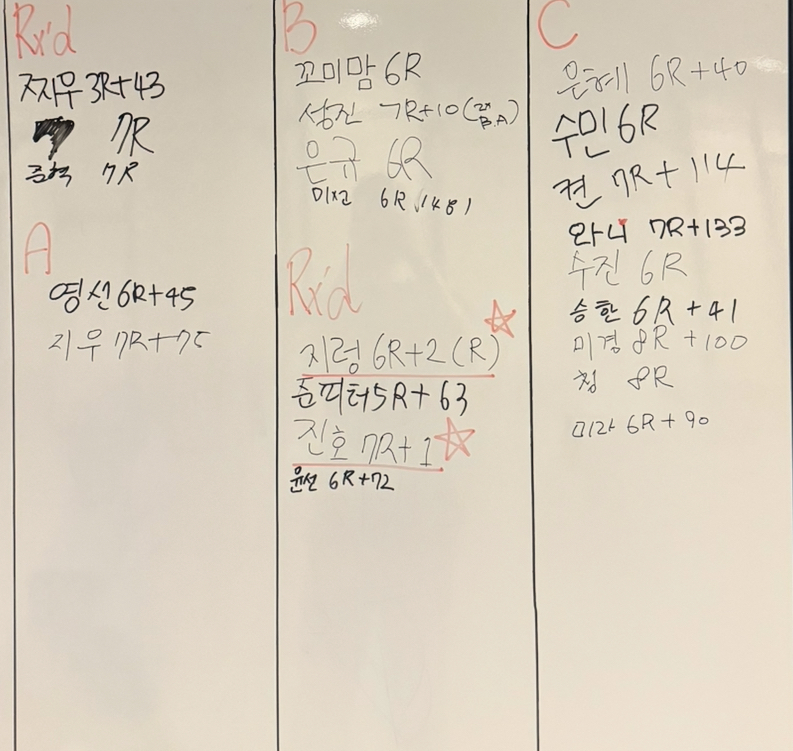 Rx'd
ㅈ지우 3R+43
7R
준혁 7R
A
영신 6R+45
지우 7R+75
B
꼬미맘 6R
성진 7R+10(
B.A)
은규 6R
6R
Rx'd
지령 6R+2(R)
쥰피터 5R+63
진호 7R+1
윤선 6R+72
C
은혜 6R+40
수민 6R
켠 7R+114
와니 7R+133
수진 6R
승한 6R+41
미경 8R+100
첨 8R
미라 6R+90